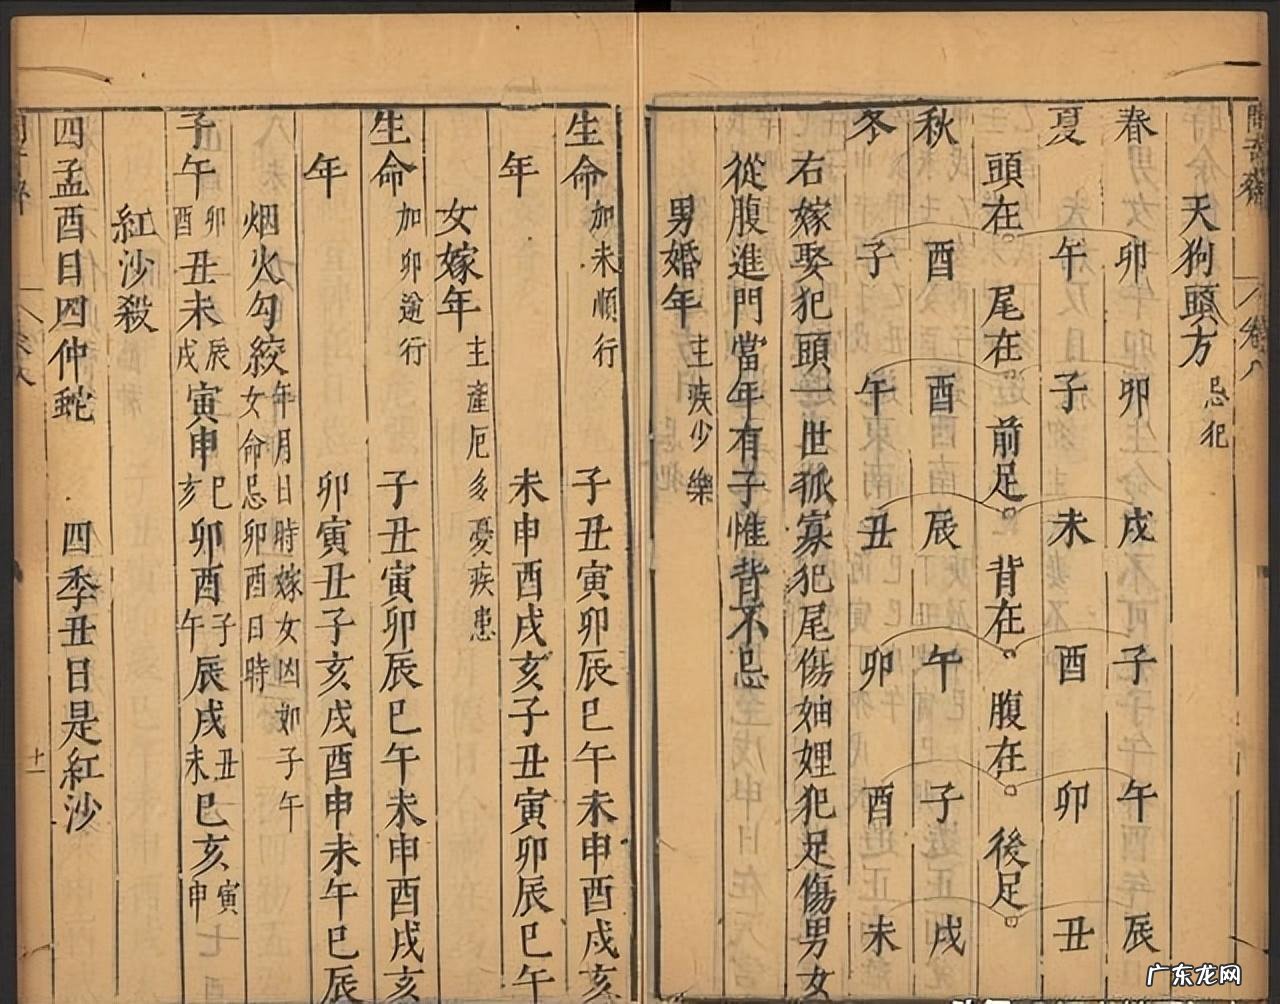 卷八
天狗頭方 忌犯
春 卯 卯 戌 子 午 辰
夏 午 子 未 酉 卯 丑
頭在。尾在。前足。背在。腹在。後足。
秋 酉 酉 辰 午 子 戌
冬 子 午 丑 卯 酉 未
右嫁娶犯頭一世狐寡犯尾傷妯娌犯足傷男女
從腹進門當年有子惟背不忌
男婚年 主疾少樂
生命 加未順行 子丑寅卯辰巳午未申酉戌亥
年 未申酉戌亥子丑寅卯辰巳午
女嫁年 主產厄多憂疾患
生命 加卯逆行 子丑寅卯辰巳午未申酉戌亥
年 卯寅丑子亥戌酉申未午巳辰
烟火勾絞 年月日時嫁女凶如子午女命忌卯酉日時
子午卯酉丑未辰戌寅申巳亥卯酉子午辰戌丑未巳亥寅申
紅沙殺
四孟酉日四仲蛇 四季丑日是紅沙
十一
广东龙网